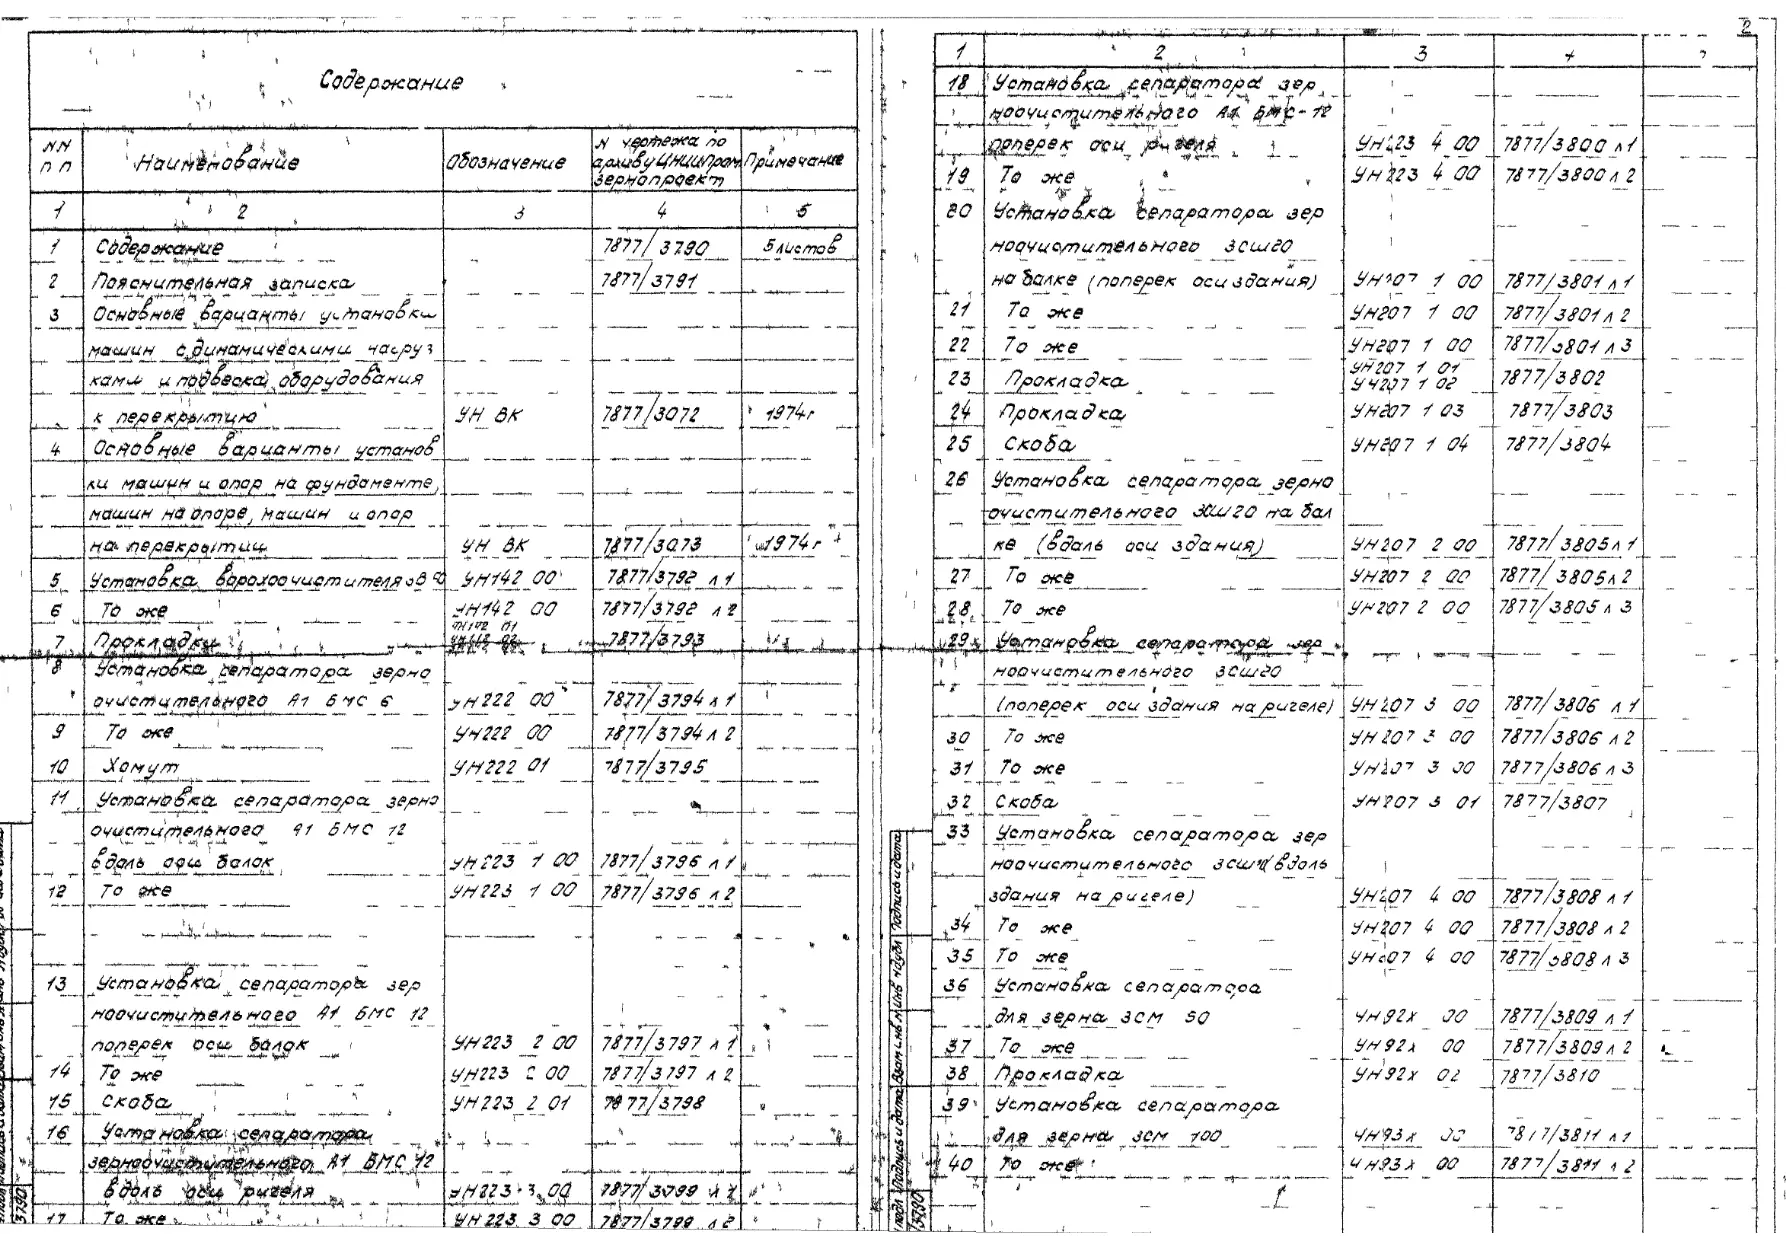 Содержание
NN п п Наименование Обозначение N чертежа по архиву ЦНИИПром зернопроект Примечание
1 2 3 4 5
1 Содержание 7877/3790 5 листов
2 Пояснительная записка 7877/3791
3 Основные варианты установки
машин с динамическими нагруз
ками и подвеска оборудования
к перекрытию УН ВК 7877/3072 1974г
4 Основные варианты установ
ки машин и опор на фундаменте,
машин на опоре, машин и опор
на перекрытии УН ВК 7877/3073 1974г
5 Установка ворохоочистителя УН142 00 7877/3792 л 1
6 То же УН142 00 7877/3792 л 2
7 Прокладки 7877/3793
8 Установка сепаратора зерно
очистительного А1 БМС 6 УН222 00 7877/3794 л 1
9 То же УН222 00 7877/3794 л 2
10 Хомут УН222 01 7877/3795
11 Установка сепаратора зерно
очистительного А1 БМС 12
вдоль оси балок УН223 1 00 7877/3796 л 1
12 То же УН223 1 00 7877/3796 л 2
13 Установка сепаратора зер
ноочистительного А1 БМС 12
поперек оси балок УН223 2 00 7877/3797 л 1
14 То же УН223 2 00 7877/3797 л 2
15 Скоба УН223 2 01 7877/3798
16 Установка сепаратора
зерноочистительного А1 БМС 12
вдоль оси ригеля УН223 3 00 7877/3799 л 1
17 То же УН223 3 00 7877/3799 л 2
3790
2
1 2 3 4
18 Установка сепаратора зер
ноочистительного А1 БМС-12
поперек оси ригеля УН223 4 00 7877/3800 л 1
19 То же УН223 4 00 7877/3800 л 2
20 Установка сепаратора зер
ноочистительного ЗСШ20
на балке (поперек оси здания) УН207 1 00 7877/3801 л 1
21 То же УН207 1 00 7877/3801 л 2
22 То же УН207 1 00 7877/3801 л 3
23 Прокладка УН207 1 01 УН207 1 02 7877/3802
24 Прокладка УН207 1 03 7877/3803
25 Скоба УН207 1 04 7877/3804
26 Установка сепаратора зерно
очистительного ЗСШ20 на бал
ке (вдоль оси здания) УН207 2 00 7877/3805 л 1
27 То же УН207 2 00 7877/3805 л 2
28 То же УН207 2 00 7877/3805 л 3
29 Установка сепаратора зер
ноочистительного ЗСШ20
(поперек оси здания на ригеле) УН207 3 00 7877/3806 л 1
30 То же УН207 3 00 7877/3806 л 2
31 То же УН207 3 00 7877/3806 л 3
32 Скоба УН207 3 01 7877/3807
33 Установка сепаратора зер
ноочистительного вдоль
здания на ригеле) УН207 4 00 7877/3808 л 1
34 То же УН207 4 00 7877/3808 л 2
35 То же УН207 4 00 7877/3808 л 3
36 Установка сепаратора
для зерна ЗСМ 50 УН92х 00 7877/3809 л 1
37 То же УН92х 00 7877/3809 л 2
38 Прокладка УН92х 02 7877/3810
39 Установка сепаратора
для зерна ЗСМ 100 УН93х 00 7877/3811 л 1
40 То же УН93х 00 7877/3811 л 2
3790